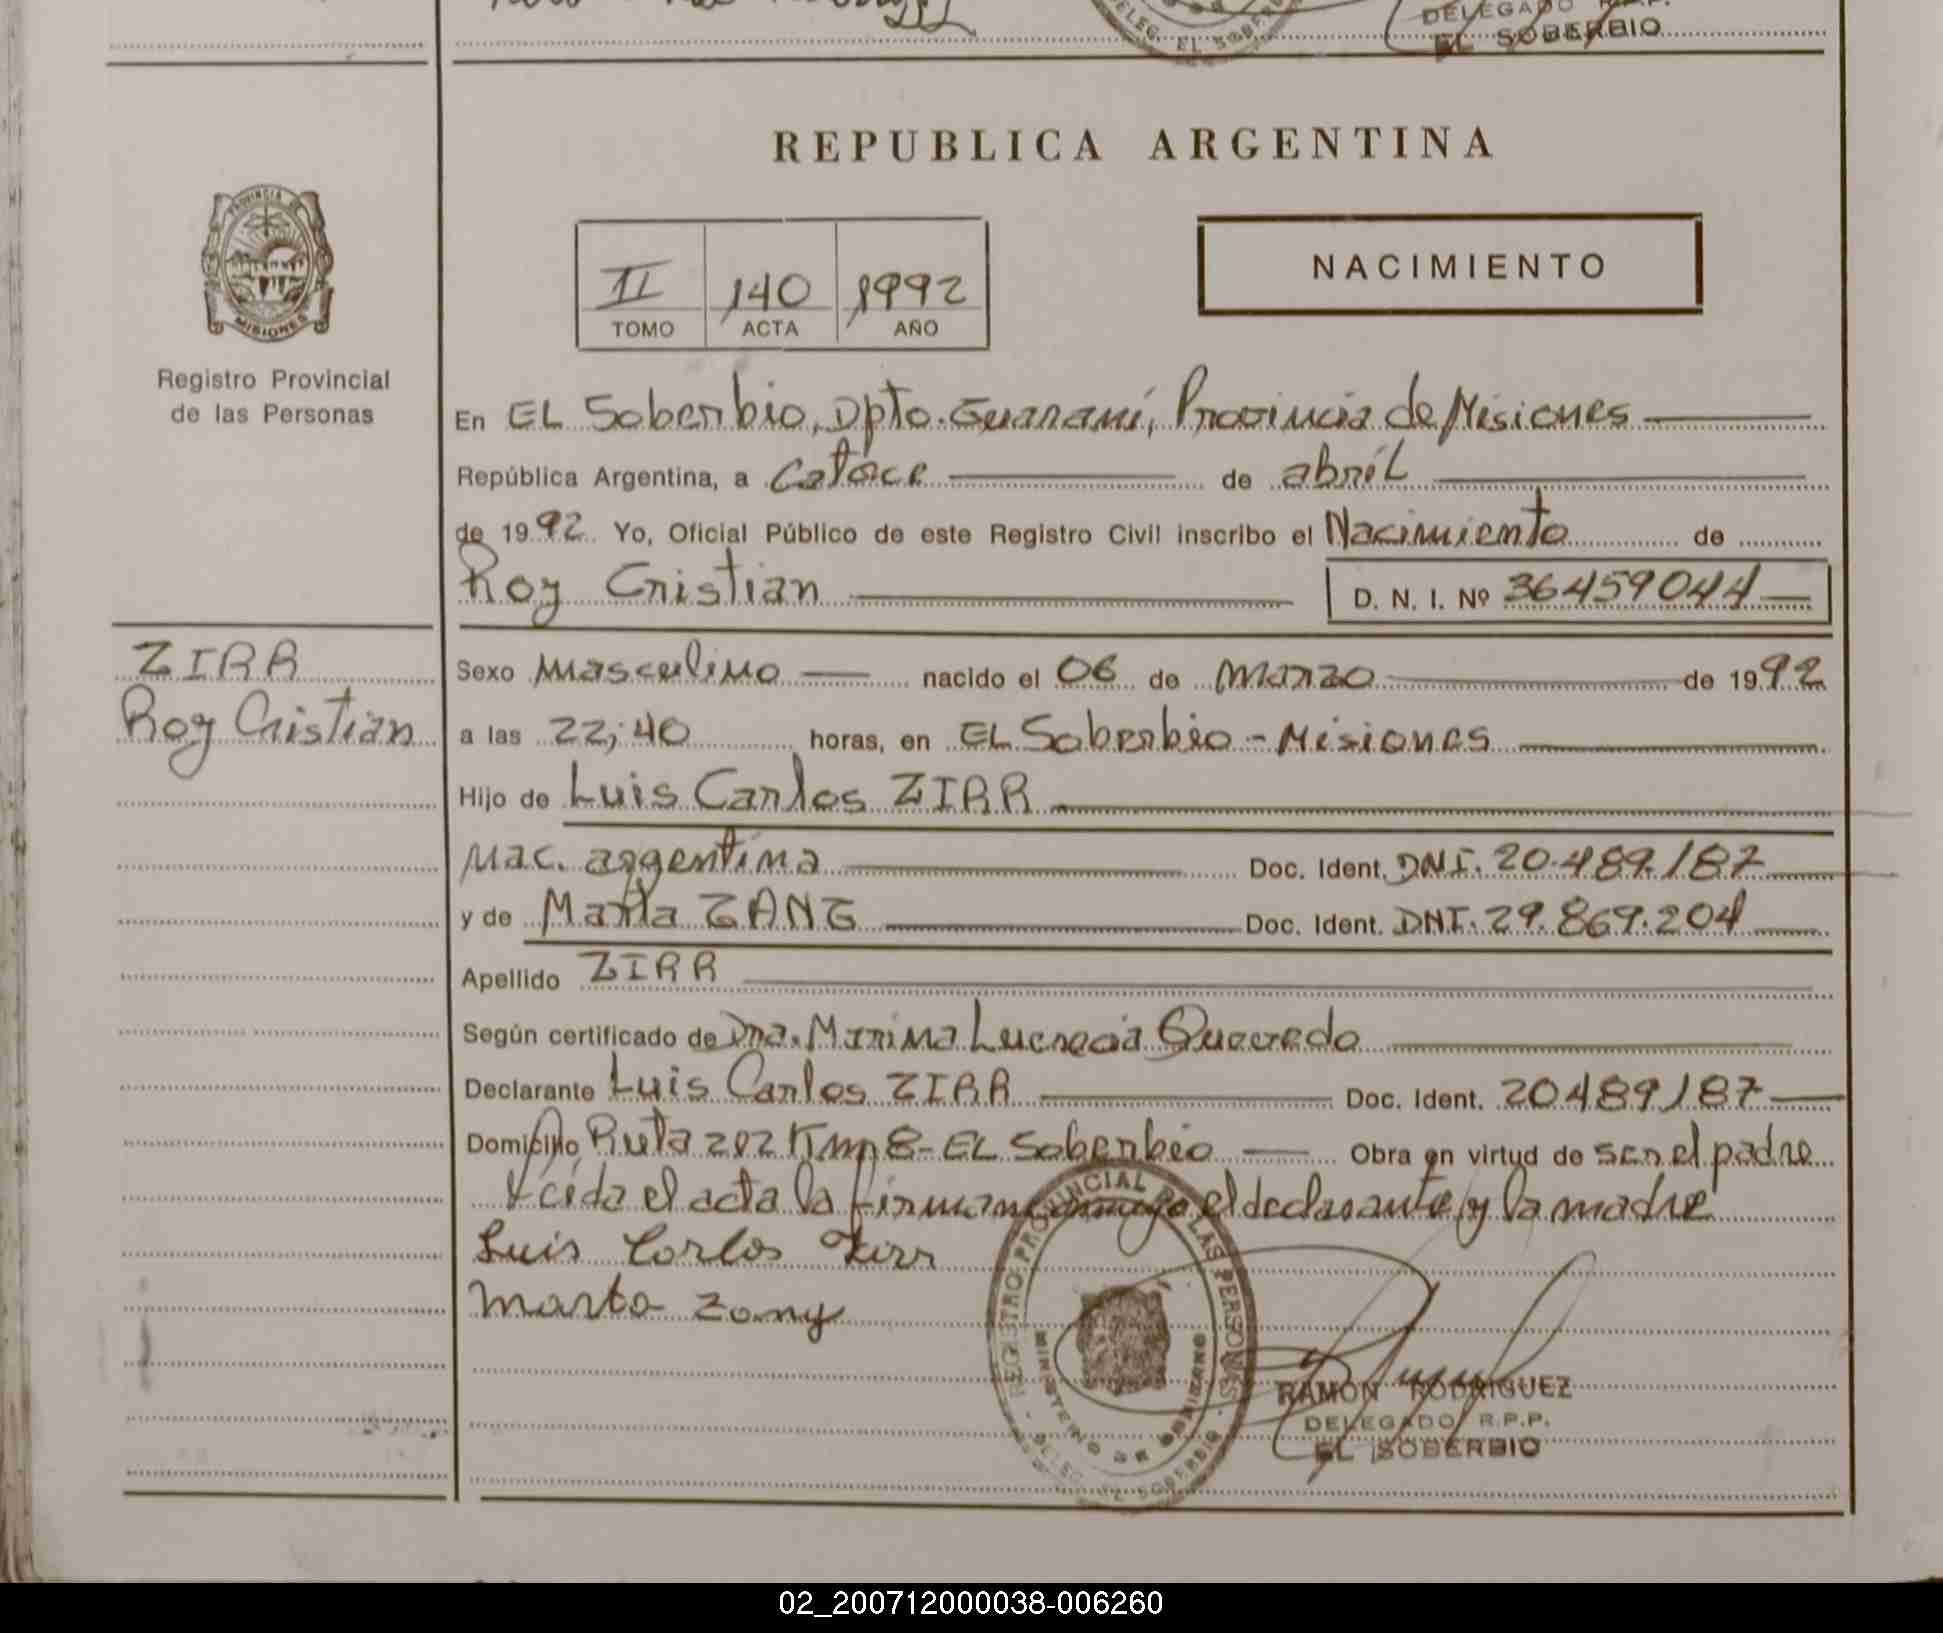 DELEG. EL SOBERBIO
DELEGADO R.P.P.
EL SOBERBIO
REPUBLICA ARGENTINA
PROVINCIA DE
MISIONES
Registro Provincial
de las Personas
II 140 1992
TOMO ACTA AÑO
NACIMIENTO
En EL Soberbio, Dpto. Guaraní, Provincia de Misiones
República Argentina, a Catorce de abril
de 1992 Yo, Oficial Público de este Registro Civil inscribo el Nacimiento de
Roy Cristian D. N. I. Nº 36459044
ZIRR
Roy Cristian
Sexo Masculino nacido el 06 de Marzo de 1992
a las 22;40 horas, en EL Soberbio - Misiones
Hijo de Luis Carlos ZIRR
Nac. argentina Doc. Ident. DNI. 20.489.187
y de Marta ZANG Doc. Ident. DNI. 29.869.204
Apellido ZIRR
Según certificado de Dra. Marina Lucrecia Quevedo
Declarante Luis Carlos ZIRR Doc. Ident. 20489187
Domicilio Ruta 202 Km 8 - EL Soberbio Obra en virtud de ser el padre
Leída el acta la firman conmigo el declarante y la madre
Luis Carlos Zirr
Marta Zang
REGISTRO PROVINCIAL DE LAS PERSONAS
MINISTERIO DE GOBIERNO
DELEG. EL SOBERBIO
RAMON RODRIGUEZ
DELEGADO R.P.P.
EL SOBERBIO
02_200712000038-006260